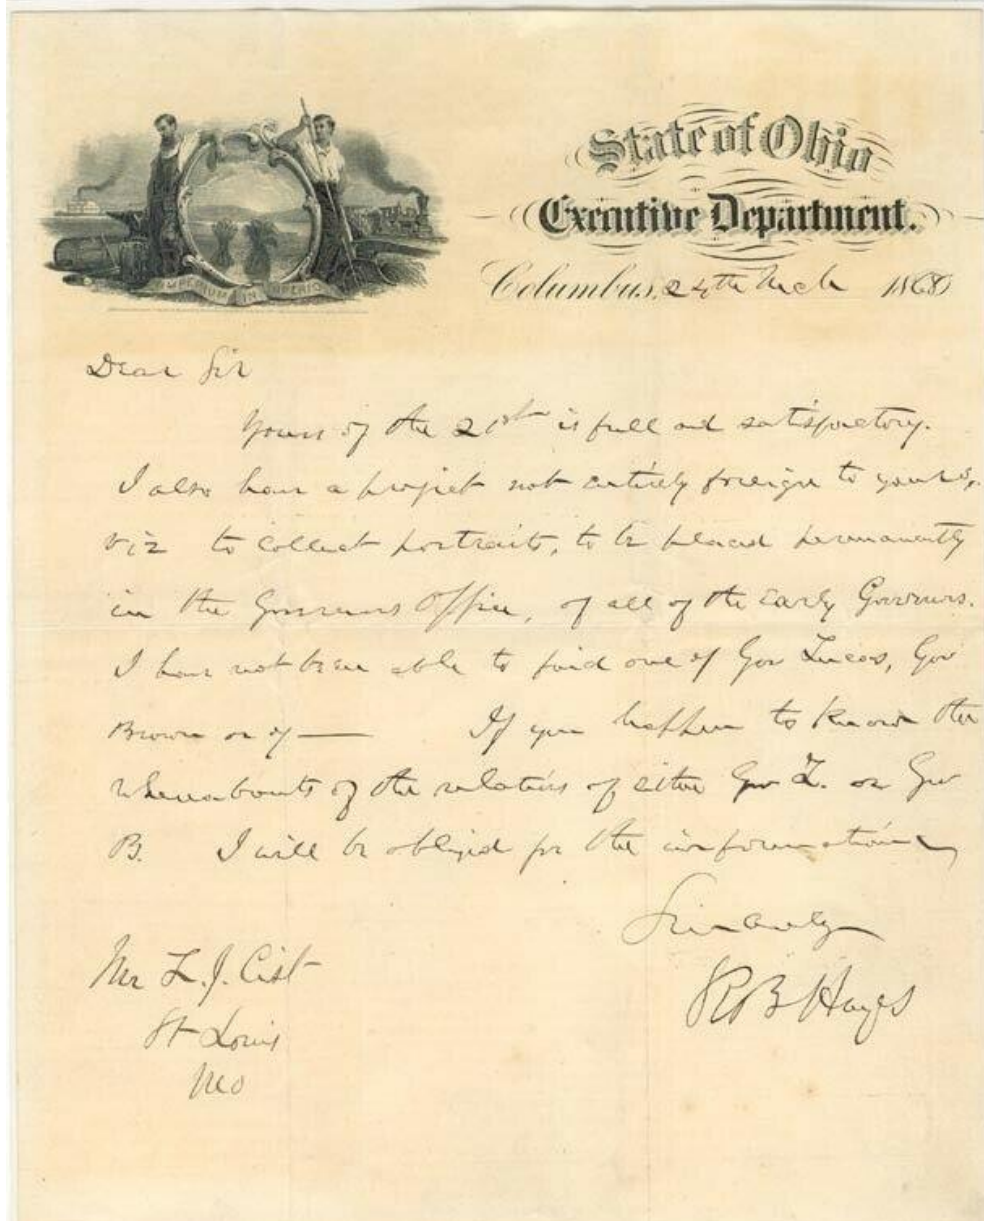 State of Ohio
Executive Department.
Columbus, 24th Mch 1868
IMPERIUM IN IMPERIO
Dear Sir
Yours of the 21st is full and satisfactory.
I also have a project not entirely foreign to yours,
viz to collect portraits, to be placed permanently
in the Governors Office, of all of the early Governors.
I have not been able to find one of Gov Lucas, Gov
Brown or of — If you happen to know the
whereabouts of the relatives of either Gov L. or Gov
B. I will be obliged for the information
Sincerely
R B Hayes
Mr L. J. Cist
St Louis
Mo